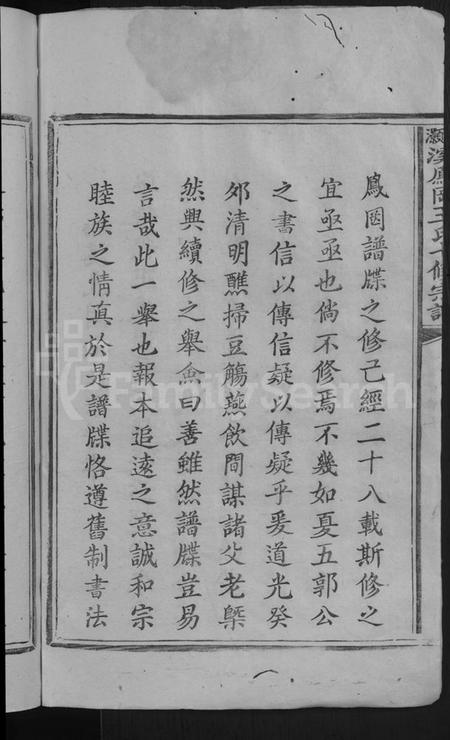 鳳岡譜牒之修已經二十八載斯修之
宜亟亟也倘不修焉不幾如夏五郭公
之書信以傳信疑以傳疑乎爰道光癸
卯清明醮掃豆觴燕飲間謀諸父老槩
然興續修之舉僉曰善雖然譜牒豈易
言哉此一舉也報本追遠之意誠和宗
睦族之情真於是譜牒恪遵舊制書法
灝溪鳳岡王氏修宗譜
FamilySearch